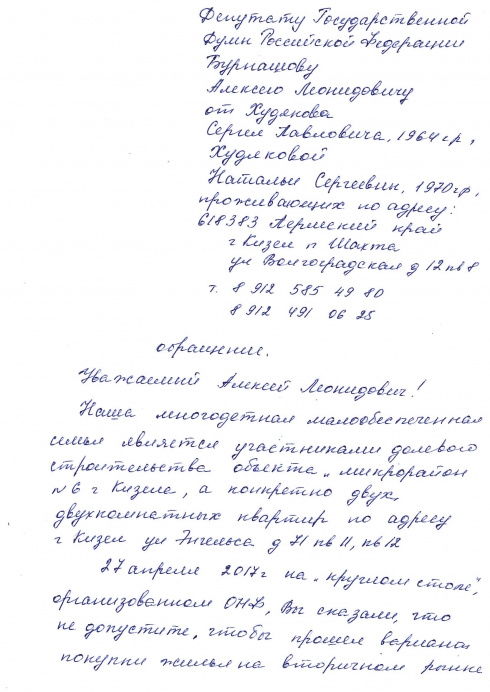 Депутату Государственной
Думы Российской Федерации
Бурнашову
Алексею Леонидовичу
от Худякова
Сергея Павловича, 1964 г.р,
Худяковой
Натальи Сергеевны, 1970 гр,
проживающих по адресу:
618383 Пермский край
г Кизел п Шахта
ул Волгоградская д 12 кв 8
т. 8 912 585 49 80
8 912 491 06 25
обращение.
Уважаемый Алексей Леонидович!
Наша многодетная малообеспеченная
семья является участниками долевого
строительства объекта „микрорайон
№6 г Кизела, а конкретно двух
двухкомнатных квартир по адресу
г Кизел ул Энгельса д 71 кв 11, кв 12
27 апреля 2017г на „круглом столе",
организованном ОНФ, Вы сказали, что
не допустите, чтобы прошел вариант
покупки жилья на вторичном рынке